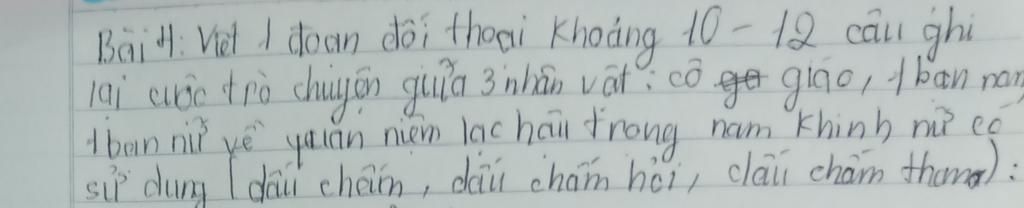 Bài 4: Viết 1 đoạn đối thoại khoảng 10 - 12 câu ghi
lại cuộc trò chuyện giữa 3 nhân vật: cô giáo, 1 bạn nam
1 bạn nữ về quan niệm lạc hậu trọng nam khinh nữ có
sử dụng (dấu chấm, dấu chấm hỏi, dấu chấm than):